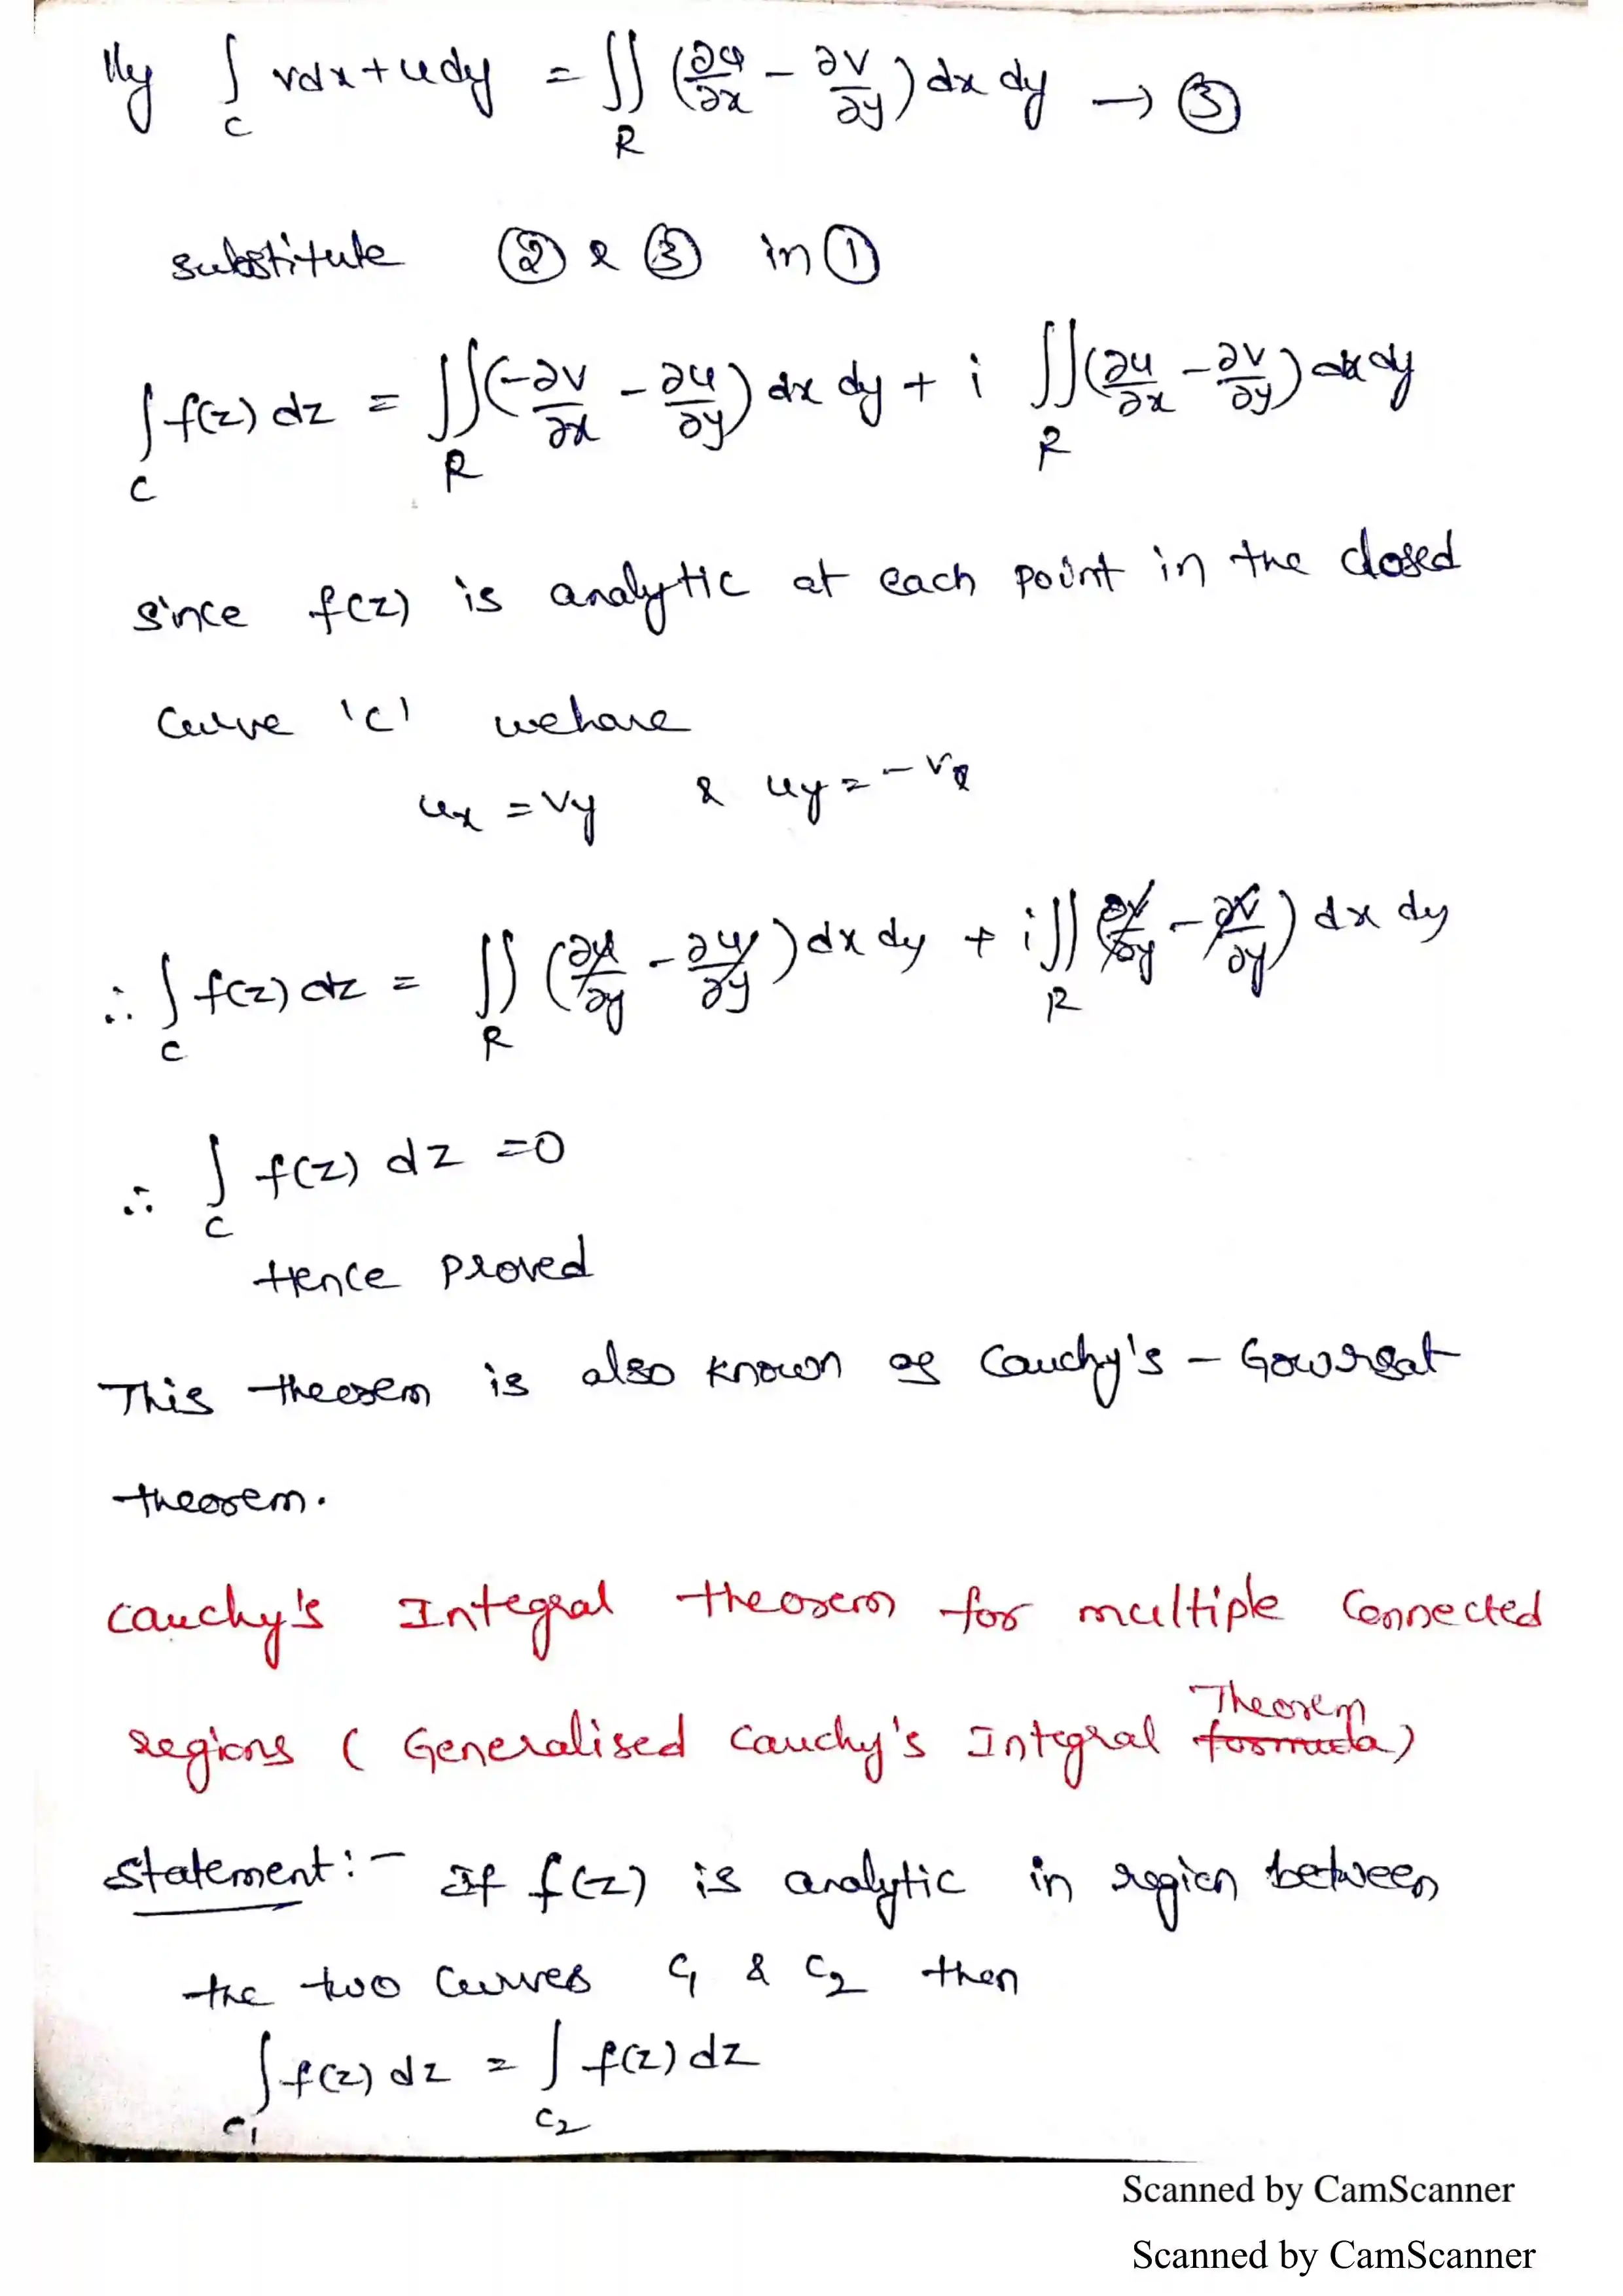 lly ∫_C vdx+udy = ∬_R (∂u/∂x − ∂v/∂y) dx dy → ③
substitute ② & ③ in ①
∫_C f(z) dz = ∬_R (−∂v/∂x − ∂u/∂y) dx dy + i ∬_R (∂u/∂x − ∂v/∂y) dx dy
since f(z) is analytic at each point in the closed
Curve 'C' we have
u_x = v_y & u_y = −v_x
∴ ∫_C f(z) dz = ∬_R (∂u/∂y − ∂u/∂y) dx dy + i ∬_R (∂v/∂y − ∂v/∂y) dx dy
∴ ∫_C f(z) dz = 0
Hence proved
This theorem is also known as Cauchy's – Gowrsat
theorem.
Cauchy's Integral theorem for multiple Connected
regions ( Generalised Cauchy's Integral formula Theorem)
Statement:- If f(z) is analytic in region between
the two Curves C1 & C2 then
∫_C1 f(z) dz = ∫_C2 f(z) dz
Scanned by CamScanner
Scanned by CamScanner